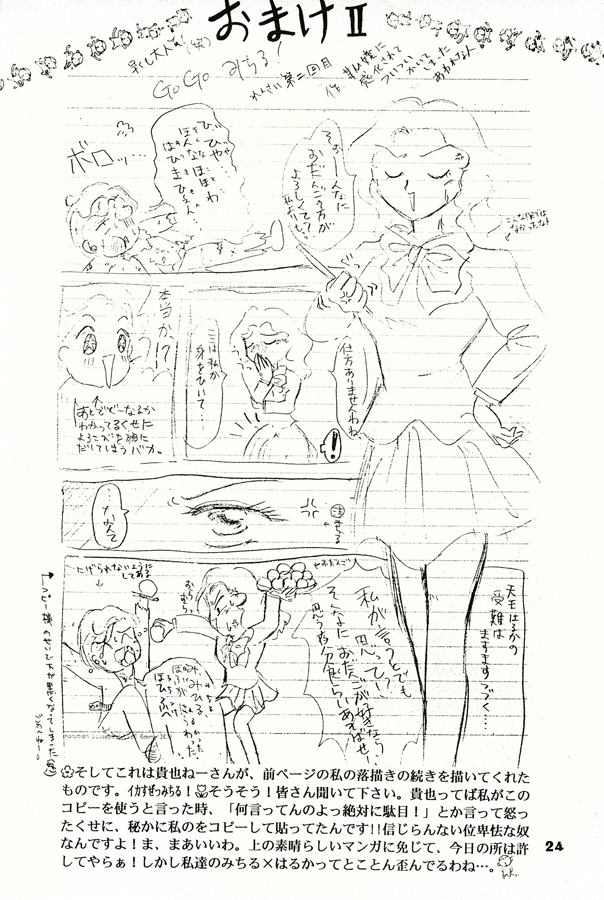 おまけⅡ
GoGo みちる!
れんさい第二回目
感化されて
ついつい
かいて
しまった
あわれな人
ボロッ…
そぉーんなに
おだんごの方が
よろしくて?
私よりも
仕方ありませんわね
本当か!?
あとでどーなるか
わかってるくせに
よろこびを顔に
だしてしまうバカ。
ここは私が
身をひいて…
!
…なんて
にげられないように
してある
おらおら
おだんご
私が言うとでも
思って!?
そんなにおだんごが好きなら、
思う存分食らいあそばせ
天王はるかの
受難は
ますますつづく…
❀そしてこれは貴也ねーさんが、前ページの私の落描きの続きを描いてくれた
ものです。イカすぜっみちる!そうそう!皆さん聞いて下さい。貴也ってば私がこの
コピーを使うと言った時、「何言ってんのよっ絶対に駄目!」とか言って怒っ
たくせに、秘かに私のをコピーして貼ってたんです!!信じらんない位卑怯な奴
なんですよ!ま、まあいいわ。上の素晴らしいマンガに免じて、今日の所は許
してやらぁ!しかし私達のみちる×はるかってとことん歪んでるわね…。
24